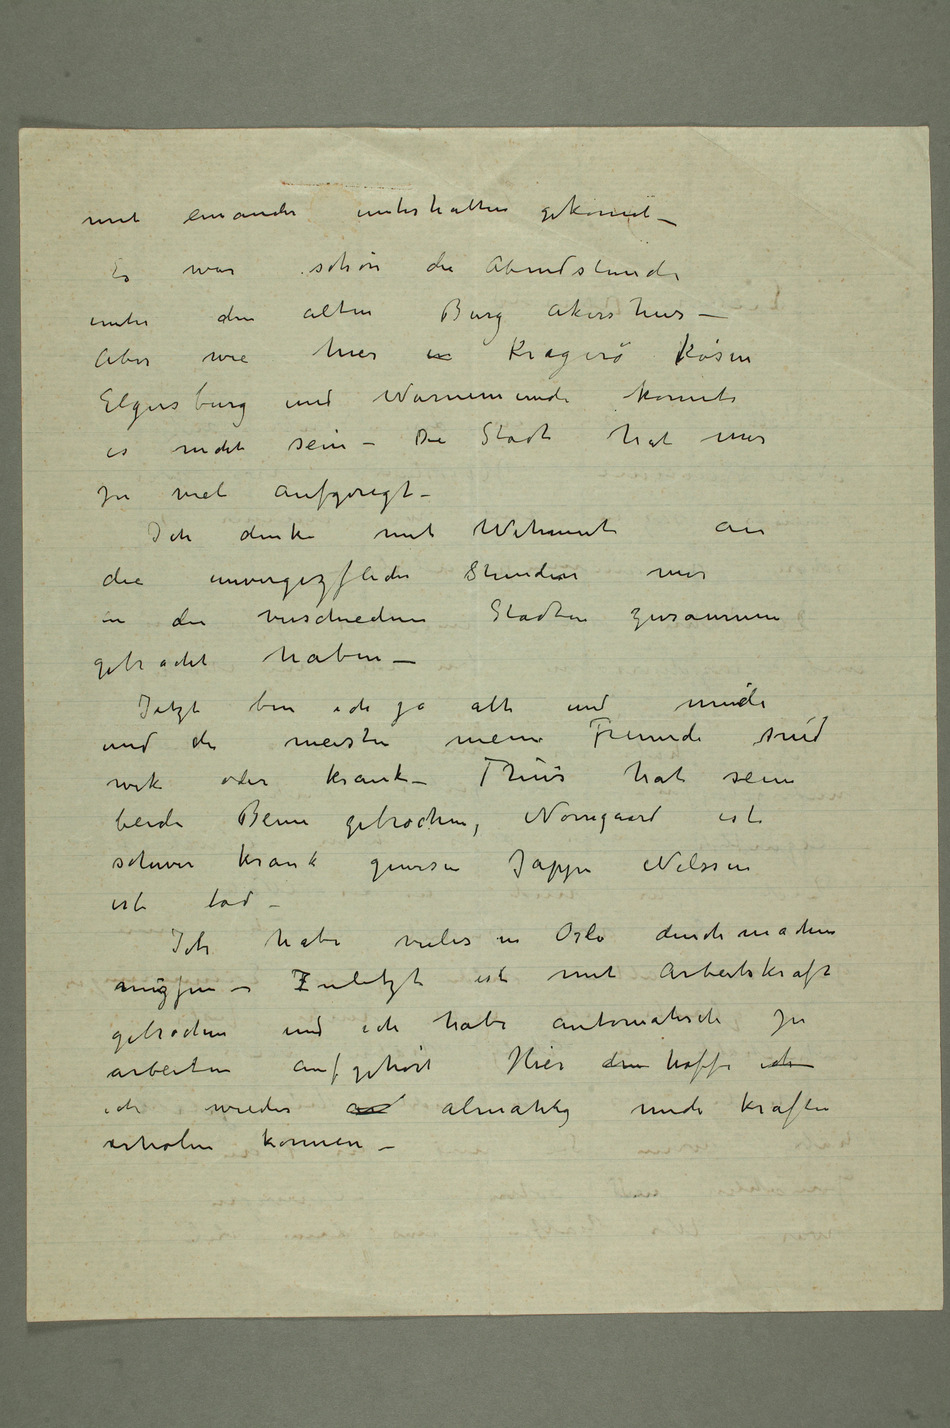 mit einander unterhalten gekonnt –
Es war schön die Abendstunde
unter den alten Burg Akershus –
Aber wie hier in Kragerö Kösen
Elgersburg und Warnemunde konnte
es nicht sein – Die Stadt hat mir
zu viel aufgeregt –
Ich denke mit Wehmut an
die unvergezfliche Stunden mir
in die verschiedene Stadten zusammen
gebracht haben –
Jetzt bin ich ja alt und müde
und die meisten meine Freunde sind
wek oder krank – Thiis hat seine
beide Beine gebrochen, Nörregaard ist
schwer krank gewesen Jappe Nilssen
ist tod –
Ich habe vieles in Oslo durchmachen
müzfen – Zuletzt ist mit Arbeitskraft
gebrochen und ich habe automatisch zu
arbeiten aufgehört Hier den hoffe ich
ich wieder an almählig mich kräften
erholen können –